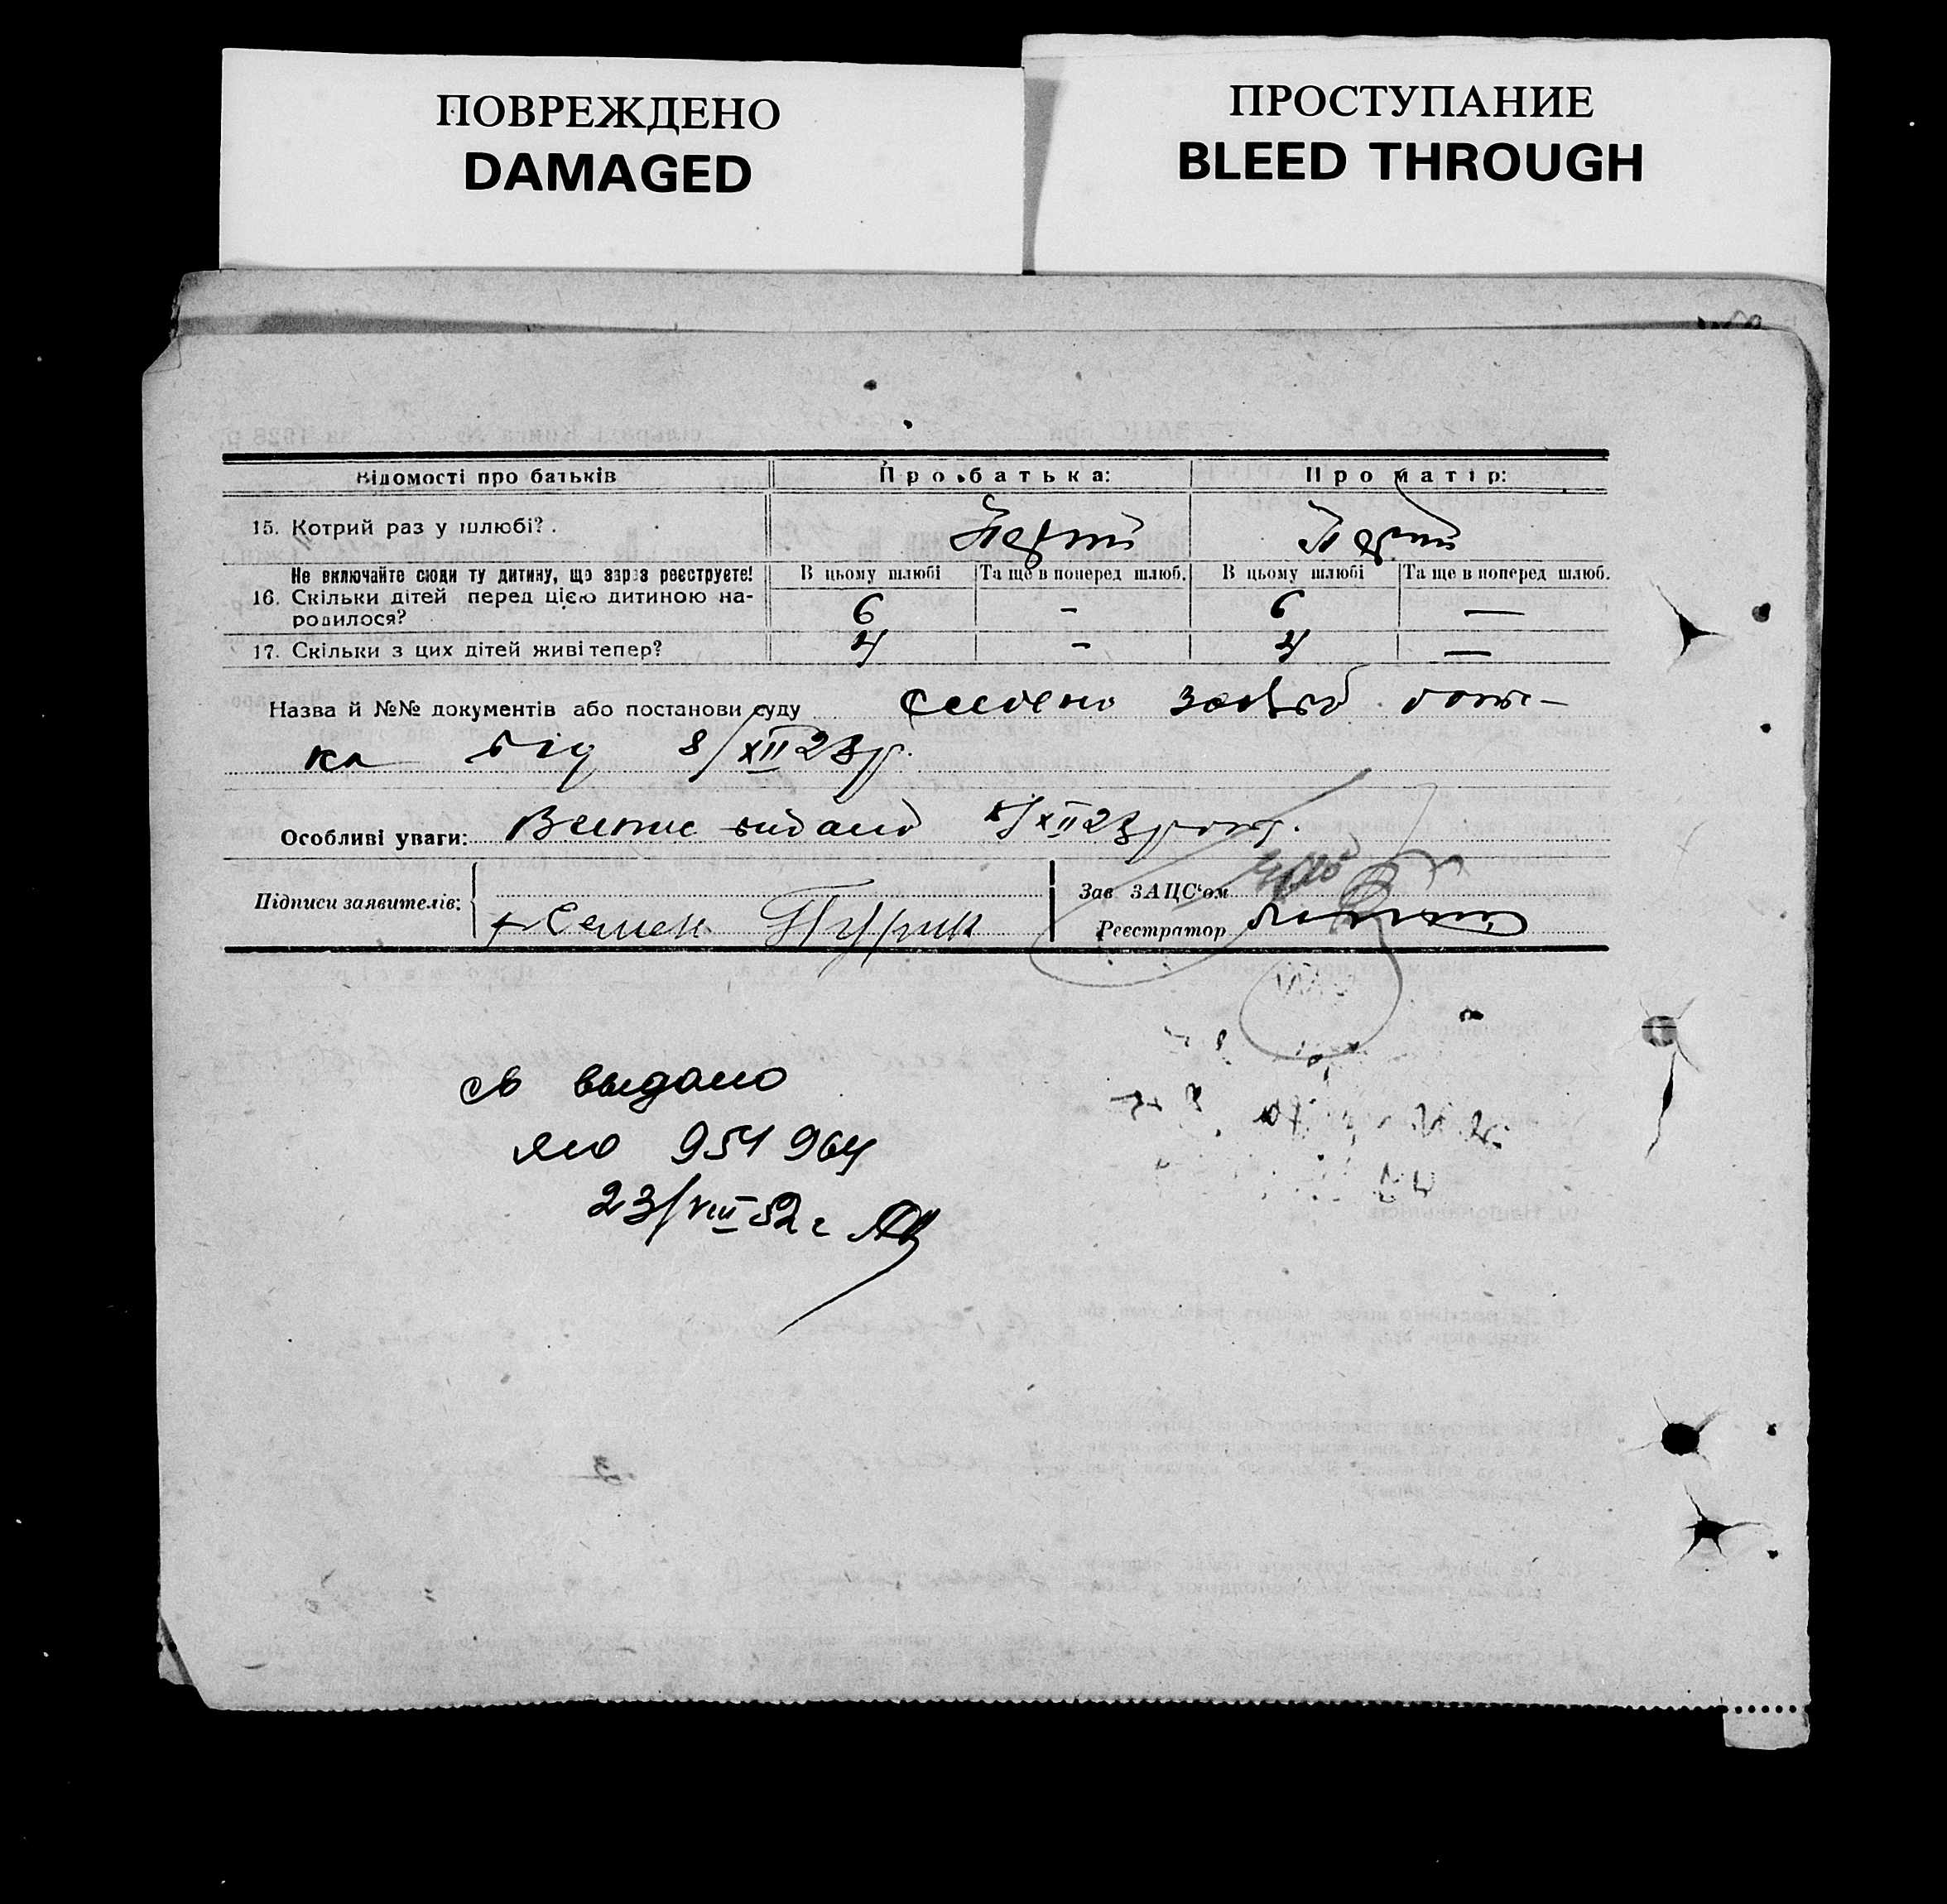 ПОВРЕЖДЕНО
DAMAGED
ПРОСТУПАНИЕ
BLEED THROUGH
Відомості про батьків
Про батька:
Про матір:
15. Котрий раз у шлюбі?
Перший
Перший
Не включайте сюди ту дитину, що зараз реєструєте!
В цьому шлюбі
Та ще в поперед шлюб.
В цьому шлюбі
Та ще в поперед шлюб.
16. Скільки дітей перед цією дитиною на-
родилося?
6
-
6
—
17. Скільки з цих дітей живі тепер?
4
-
4
—
Назва й №№ документів або постанови суду
бать-
ка від 8/XII 28 р.
Особливі уваги: видано /XII 28 р
Підписи заявителів:
Семен
Зав ЗАЦС'ом
Реєстратор
св выдано
ЯЮ 951964
23/VIII 52 г